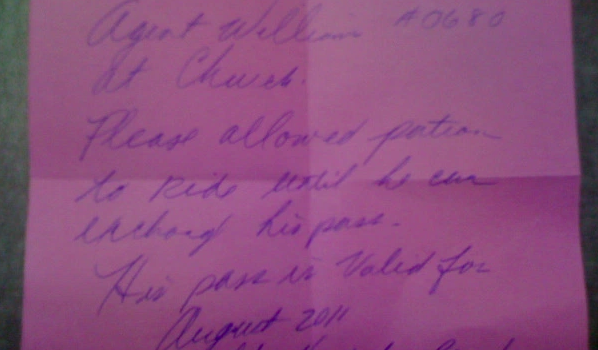 Agent William #0680
at Church.
Please allowed patron
to ride until he can
exchang his pass.
His pass is Valid for
August 2011